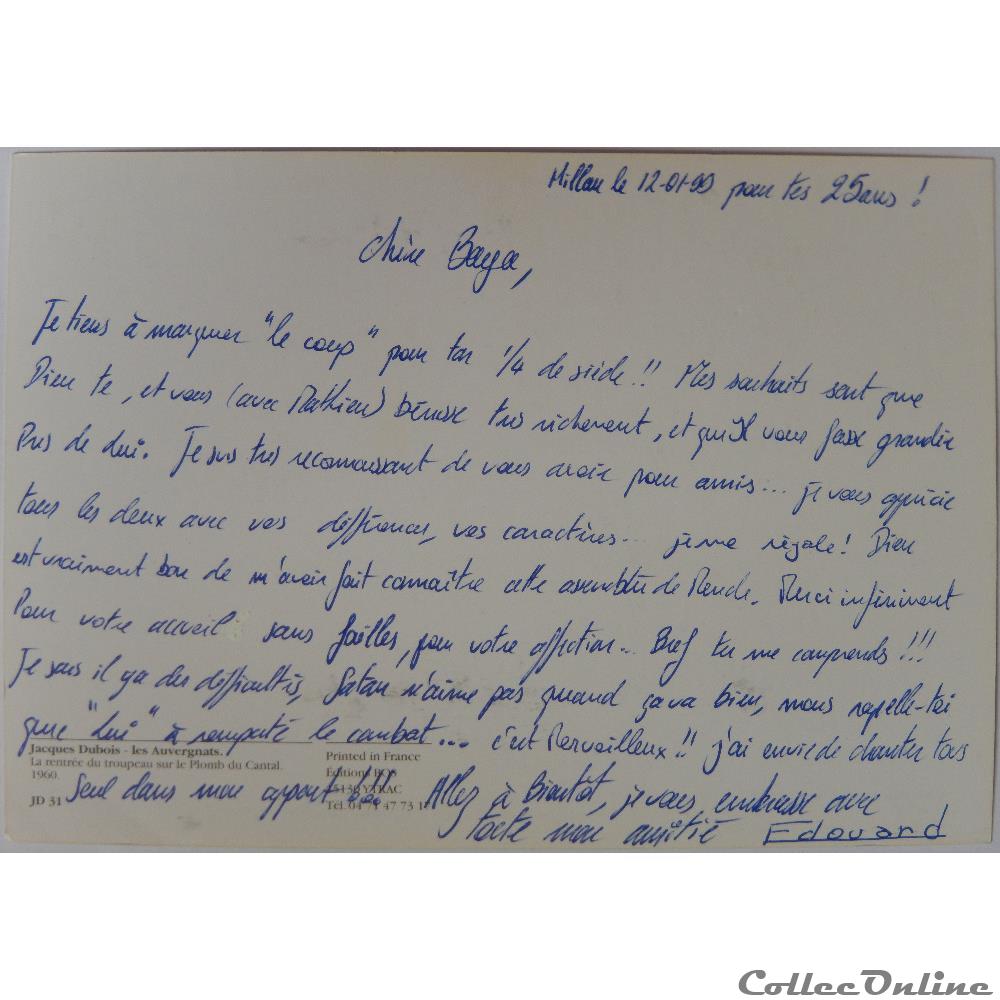 Millau le 12-01-99 pour tes 25ans !
chère Baya,
Je tiens à marquer "le coup" pour ton 1/4 de siècle !! Mes souhaits sont que
Dieu te, et vous (avec Mathieu) bénisse très richement, et qu'Il vous fasse grandir
Près de Lui. Je suis très reconnaissant de vous avoir pour amis... je vous apprécie
tous les deux avec vos différences, vos caractères... je me régale ! Dieu
est vraiment bon de m'avoir fait connaître cette assemblée de Mende. Merci infiniment
Pour votre accueil sans failles, pour votre affection... Bref tu me comprends !!!
Je sais il y a des difficultés, Satan n'aime pas quand ça va bien, mais rapelle-toi
que "Lui" à remporté le combat... c'est Merveilleux !! j'ai envie de chanter tous
Seul dans mon appart !!! Allez à Bientôt, je vous embrasse avec
toute mon amitié Edouard
Jacques Dubois - les Auvergnats.
La rentrée du troupeau sur le Plomb du Cantal.
1960.
JD 31
Printed in France
Editions BOS
15130 YTRAC
Tél. 04 71 47 73 1
CollecOnline